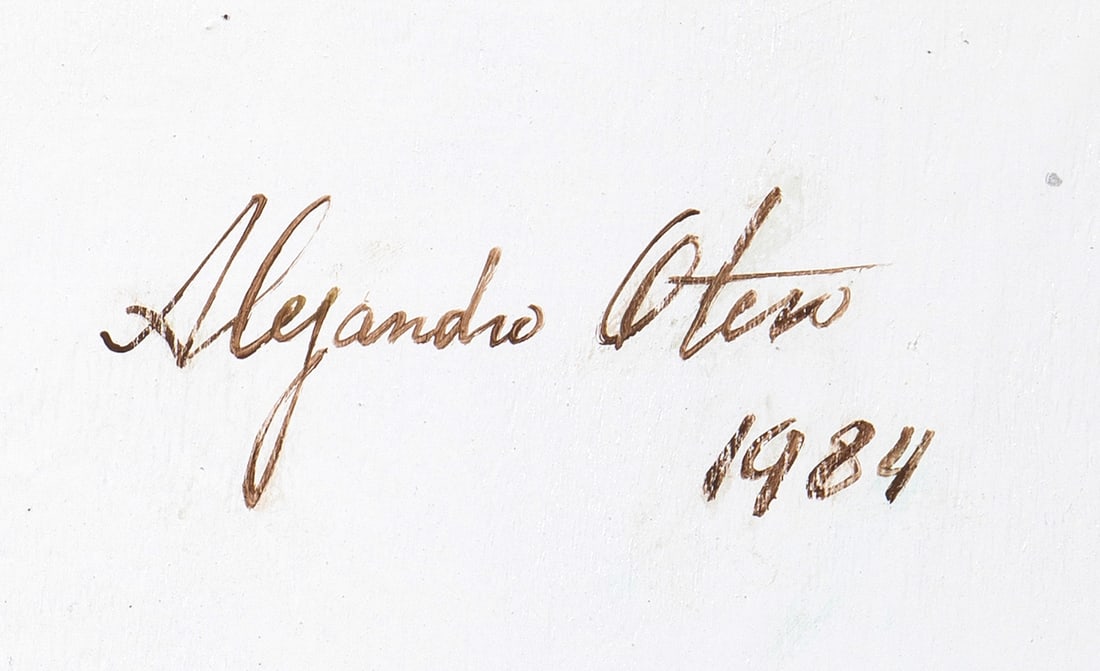 Alejandro Otero
1984